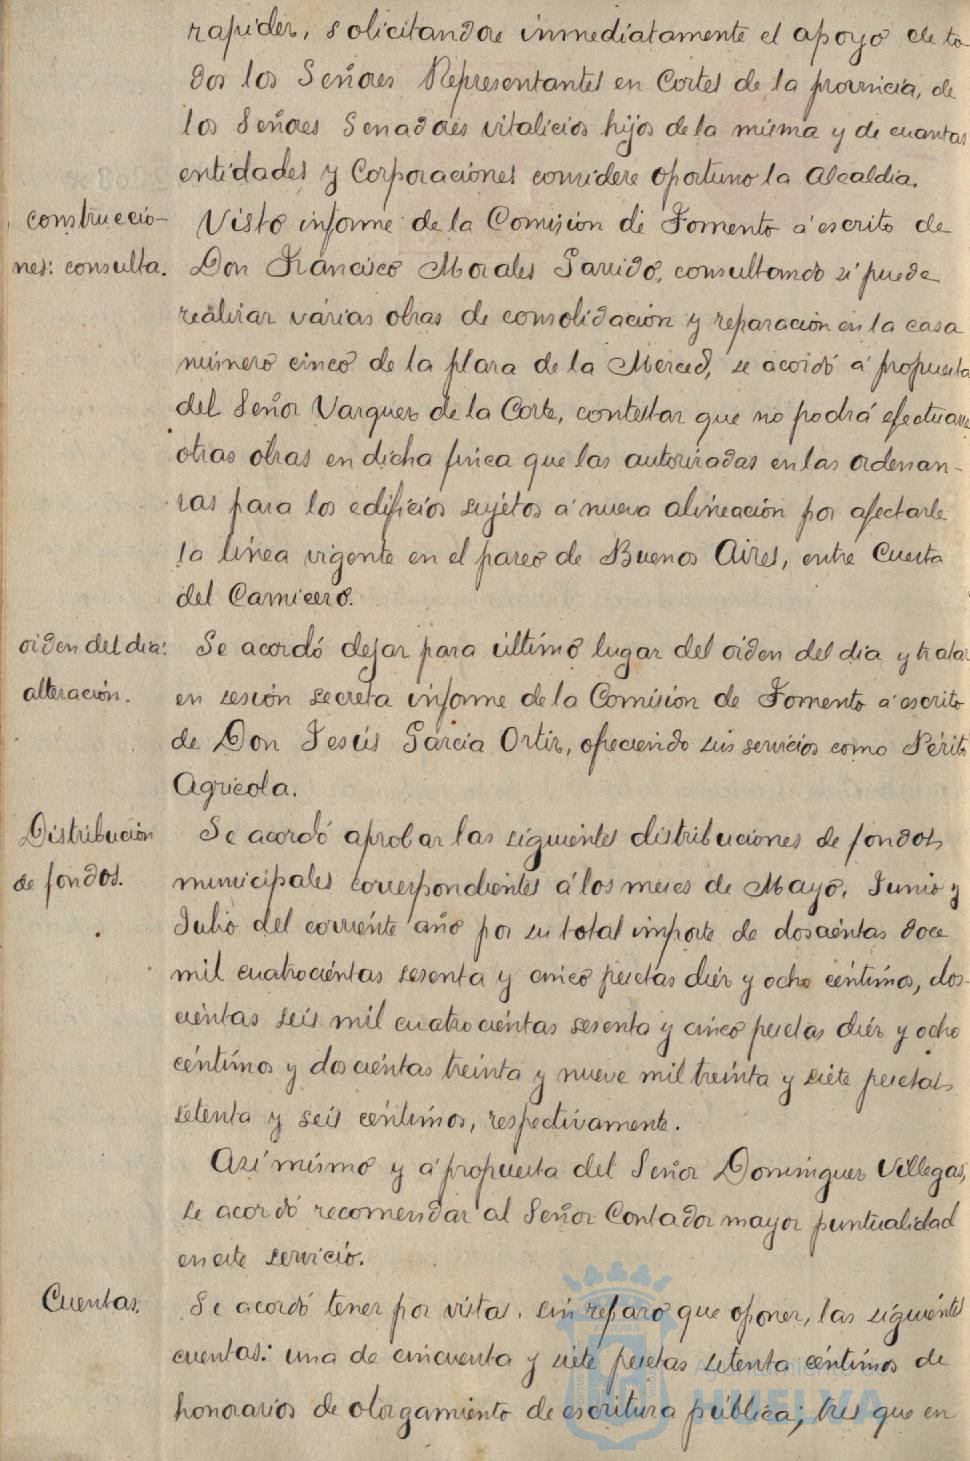 rapidez, solicitandose inmediatamente el apoyo de to-
dos los Señores Representantes en Cortes de la provincia, de
los Señores Senadores vitalicios hijos de la misma y de cuantas
entidades y Corporaciones considere oportuno la Alcaldia.
construccio-
nes: consulta.
Visto informe de la Comision de Fomento á escrito de
Don Francisco Morales Garrido, consultando si puede
realizar várias obras de consolidación y reparación en la casa
número cinco de la plaza de la Merced, se acordó á propuesta
del Señor Vazquez de la Corte, contestar que no podrá efectuarse
otras obras en dicha finca que las autorizadas en las ordenan-
zas para los edificios sujetos á nueva alineación por afectarle
la línea vigente en el paseo de Buenos Aires, entre Cuesta
del Carnicero.
orden del dia:
alteración.
Se acordó dejar para último lugar del orden del dia y tratar
en sesión secreta informe de la Comision de Fomento á escrito
de Don Jesús García Ortiz, ofreciendo sus servicios como Périto
Agricola.
Distribución
de fondos.
Se acordó aprobar las siguientes distribuciones de fondos
municipales correspondientes á los meses de Mayo, Junio y
Julio del corriente año por su total importe de doscientas doce
mil cuatrocientas sesenta y cinco pesetas diéz y ocho céntimos, dos-
cientas seis mil cuatrocientas sesenta y cinco pesetas diéz y ocho
céntimos y doscientas treinta y nueve mil treinta y siete pesetas
setenta y seis céntimos, respectivamente.
Asi mismo y á propuesta del Señor Dominguez Villegas,
se acordó recomendar al Señor Contador mayor puntualidad
en este servicio.
Cuentas.
Se acordó tener por vistas, sin reparo que oponer, las siguientes
cuentas: una de cincuenta y siete pesetas setenta céntimos de
honorarios de otorgamiento de escritura pública; tres que en
Ayuntamiento de
HUELVA